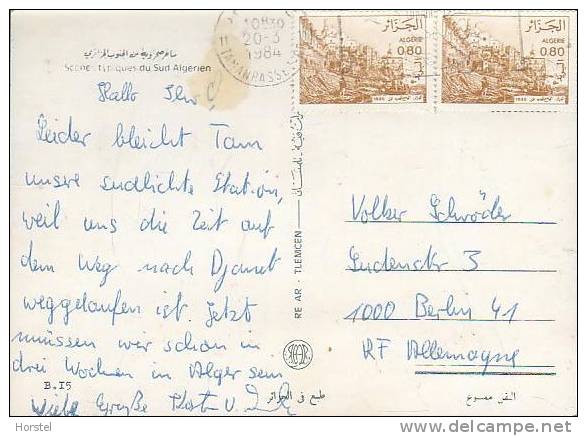 مناظر صحراوية من الجنوب الجزائري
Scènes typiques du Sud Algérien
10H30
20-3
1984
TAMANRASSET
الجزائر
ALGERIE
0.80
الجزائر
ALGERIE
0.80
Hallo
Leider bleicht Tam
unsere südlichste Station,
weil uns die Zeit auf
dem Weg nach Djanet
weggelaufen ist. Jetzt
müssen wir schon in
drei Wochen in Alger sein
Liebe Grüße
B.I5
RE AR - TLEMCEN
Volker Schröder
Sudenstr 3
1000 Berlin 41
RF Allemagne
طبع في الجزائر
النقل ممنوع
Horstel
delcampe.net